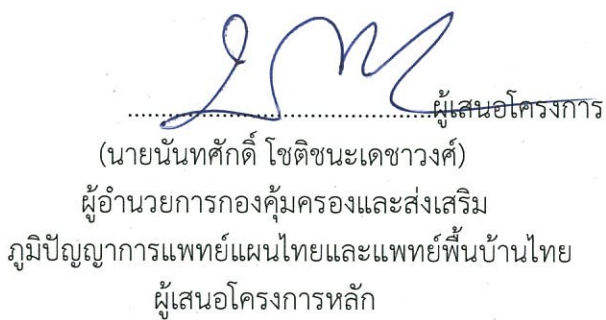 ..................................................ผู้เสนอโครงการ
(นายนันทศักดิ์ โชติชนะเดชาวงศ์)
ผู้อำนวยการกองคุ้มครองและส่งเสริม
ภูมิปัญญาการแพทย์แผนไทยและแพทย์พื้นบ้านไทย
ผู้เสนอโครงการหลัก